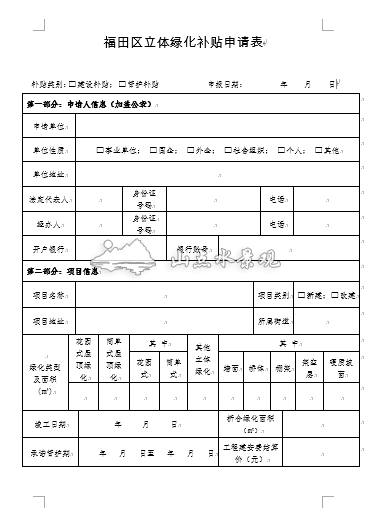 福田区立体绿化补贴申请表
补贴类别：□建设补贴；□管护补贴 申报日期： 年 月 日
第一部分：申请人信息（加盖公章）
申请单位
单位性质 □事业单位； □国企； □外企； □社会组织； □个人； □其他
单位地址
法定代表人 身份证号码 电话
经办人 身份证号码 电话
开户银行 银行账号
山点水景观
第二部分：项目信息
项目名称 项目类别 □新建；□改建
项目地址 所属街道
绿化类型及面积（㎡） 花园式屋顶绿化 简单式屋顶绿化 其中 其他立体绿化 其中
花园式 简单式 墙面 桥体 棚架 架空层 硬质坡面
竣工日期 年 月 日 折合绿化面积（㎡）
承诺管护期 年 月 日至 年 月 日 工程建安费结算价（元）